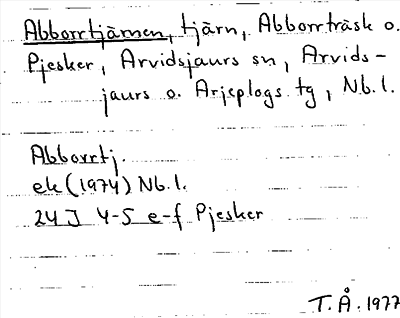 Abborrtjärnen, tjärn, Abborrträsk o.
Pjesker, Arvidsjaurs sn, Arvids-
jaurs o. Arjeplogs tg, Nb.l.
Abborrtj.
ek (1974) Nb.l.
24J 4-5 e-f Pjesker
T.Å. 1977